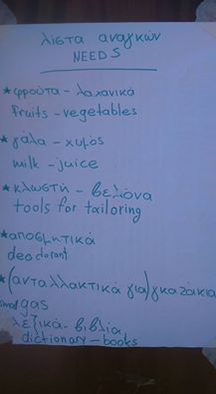 λίστα αναγκών
NEEDS
*φρούτα - λαχανικά
fruits - vegetables
*γάλα - χυμος
milk - juice
*κλωστή - βελόνα
tools for tailoring
*αποσμητικά
deodorant
*(ανταλλακτικά για) γκαζάκια
small gas
λεξικά - βιβλία
dictionary - books